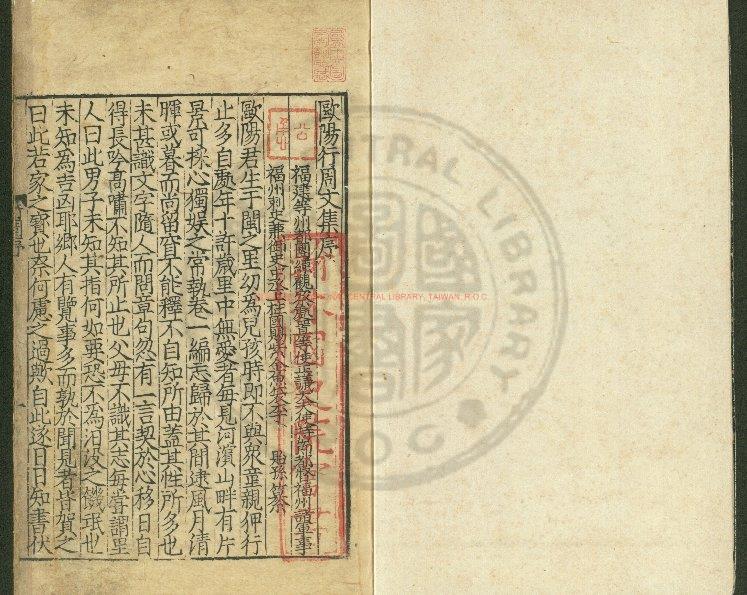 歐陽行周文集序
福建等州都團練觀察處置等使正議大夫使持節都督福州諸軍事
福州刺史兼御史中丞上柱國賜紫金魚袋李 貽孫 纂
歐陽君生于閩之里幼為兒孩時即不與衆童親狎行
止多自處年十許歲里中無愛者每見河濱山畔有片
景可採心獨娛之常執卷一編忘歸於其間逮風月清
暉或暮而尚留窅不能釋不自知所由蓋其性所多也
未甚識文字隨人而問章句忽有一言契於心移日自
得長吟高嘯不知其所止也父母不識其志每嘗謂里
人曰此男子未知其指何如要恐不為汨没之饑氓也
未知為吉凶耶鄉人有覽事多而執於聞見者皆賀之
曰此若家之寶也奈何慮之過歟自此遂日日知書伏
CENTRAL LIBRARY
R.O.C
CENTRAL LIBRARY, TAIWAN, R.O.C.